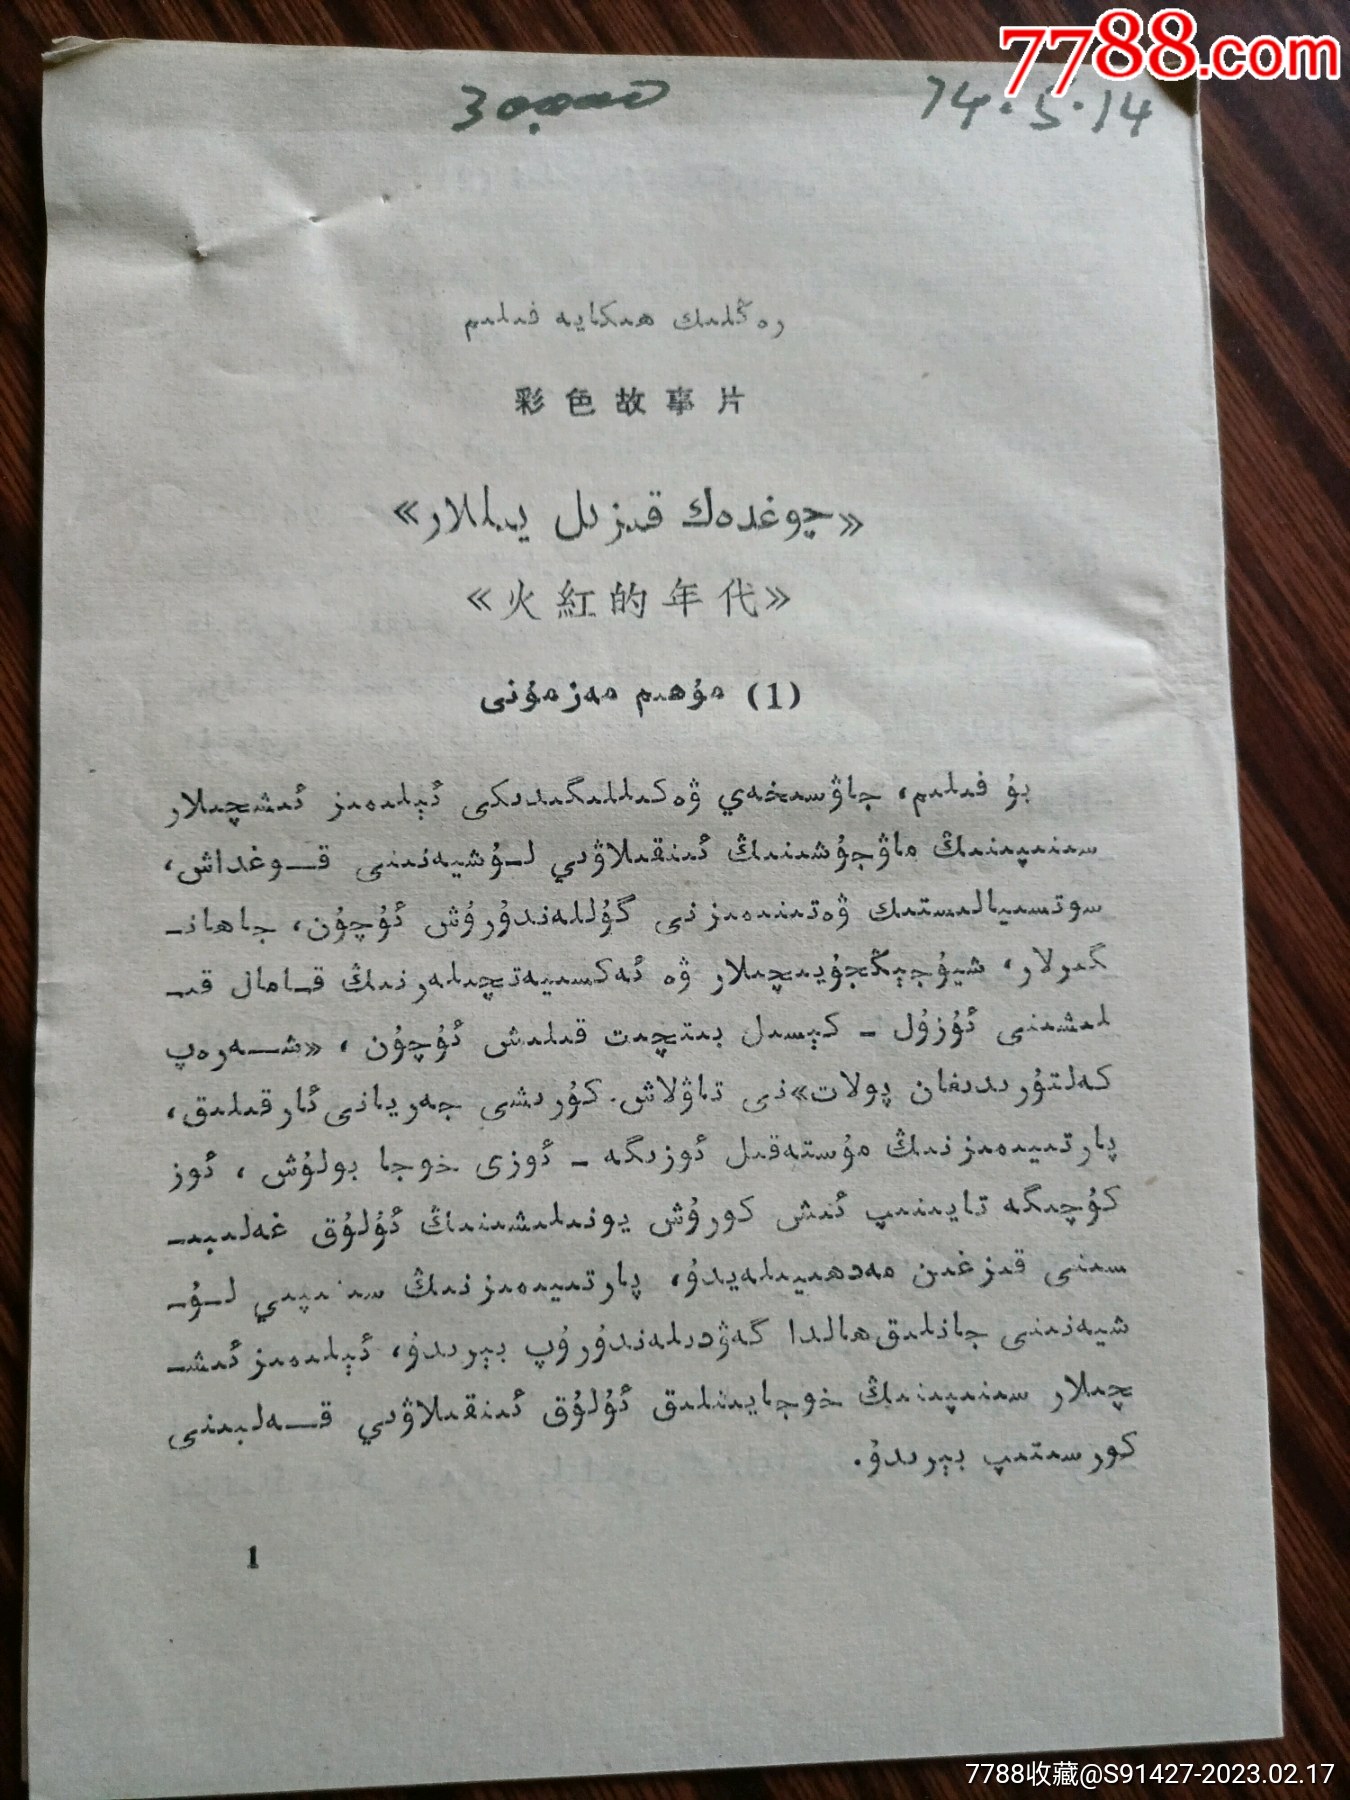 7788.com
74.5.14
رەڭلىك ھىكايە فىلىم
彩色故事片
«چوغدەك قىزىل يىللار»
《火紅的年代》
(1) مۇھىم مەزمۇنى
بۇ فىلىم، جاۋسىخەي ۋەكىللىگىدىكى ئېلىمىز ئىشچىلار
سىنىپىنىڭ ماۋجۇشىنىڭ ئىنقىلاۋىي لـۇشيەنىنى قـــوغداش،
سوتسىيالىستىك ۋەتىنىمىزنى گۈللەندۈرۈش ئۈچۈن، جاھانـ
گىرلار، شيۇجېڭجۇيىچىلار ۋە ئەكسىيەتچىلەرنىڭ قـامال قىـ
لىشىنى ئۈزۈل ـ كېسىل بىتچىت قىلىش ئۈچۈن، «شـــەرەپ
كەلتۈرىدىغان پولات»نى تاۋلاش. كۈرىشى جەريانى ئارقىلىق،
پارتىيىمىزنىڭ مۇستەقىل ئوزىگە ـ ئوزى خوجا بولۇش، ئوز
كۈچىگە تايىنىپ ئىش كورۈش يونىلىشىنىڭ ئۇلۇق غەلىبىـ
سىنى قىزغىن مەدھىيىلەيدۇ، پارتىيىمىزنىڭ سىنىپىي لـۇـ
شيەنىنى جانلىق ھالدا گەۋدىلەندۈرۈپ بېرىدۇ، ئېلىمىز ئىشـ
چىلار سىنىپىنىڭ خوجايىنلىق ئۇلۇق ئىنقىلاۋىي قـــەلبىنى
كورسىتىپ بېرىدۇ.
1
7788收藏@S91427-2023.02.17